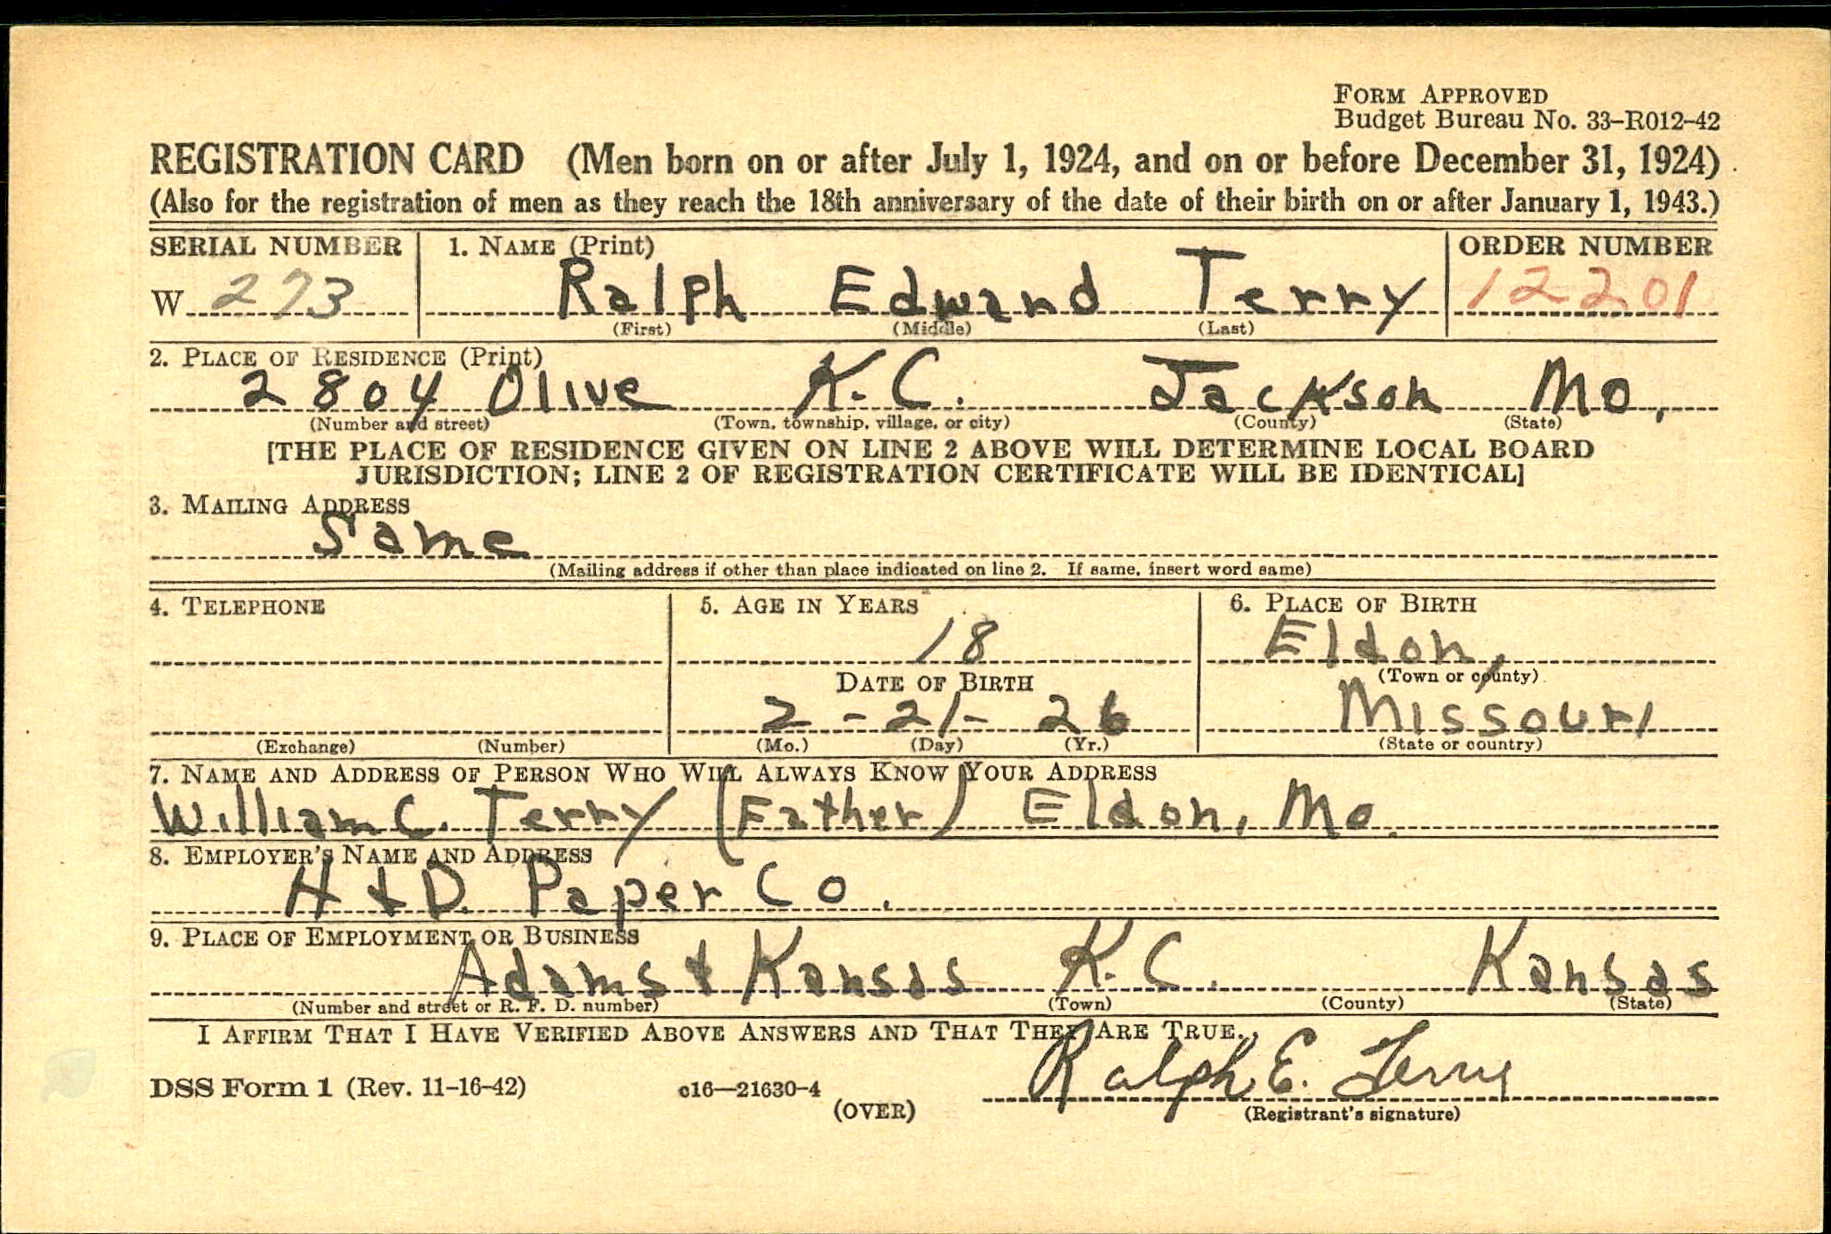 FORM APPROVED
Budget Bureau No. 33–R012–42
REGISTRATION CARD (Men born on or after July 1, 1924, and on or before December 31, 1924)
(Also for the registration of men as they reach the 18th anniversary of the date of their birth on or after January 1, 1943.)
SERIAL NUMBER 1. NAME (Print) ORDER NUMBER
W 273 Ralph Edward Terry 12201
(First) (Middle) (Last)
2. PLACE OF RESIDENCE (Print)
2804 Olive K.C. Jackson Mo.
(Number and street) (Town, township, village, or city) (County) (State)
[THE PLACE OF RESIDENCE GIVEN ON LINE 2 ABOVE WILL DETERMINE LOCAL BOARD
JURISDICTION; LINE 2 OF REGISTRATION CERTIFICATE WILL BE IDENTICAL]
3. MAILING ADDRESS
Same
(Mailing address if other than place indicated on line 2. If same, insert word same)
4. TELEPHONE 5. AGE IN YEARS 6. PLACE OF BIRTH
18 Eldon,
DATE OF BIRTH (Town or county)
2 – 21 – 26 Missouri
(Exchange) (Number) (Mo.) (Day) (Yr.) (State or country)
7. NAME AND ADDRESS OF PERSON WHO WILL ALWAYS KNOW YOUR ADDRESS
William C. Terry (Father) Eldon, Mo.
8. EMPLOYER'S NAME AND ADDRESS
H & D. Paper Co.
9. PLACE OF EMPLOYMENT OR BUSINESS
Adams & Kansas K.C. Kansas
(Number and street or R. F. D. number) (Town) (County) (State)
I AFFIRM THAT I HAVE VERIFIED ABOVE ANSWERS AND THAT THEY ARE TRUE.
Ralph E. Terry
DSS Form 1 (Rev. 11–16–42) c16—21630–4
(OVER) (Registrant's signature)